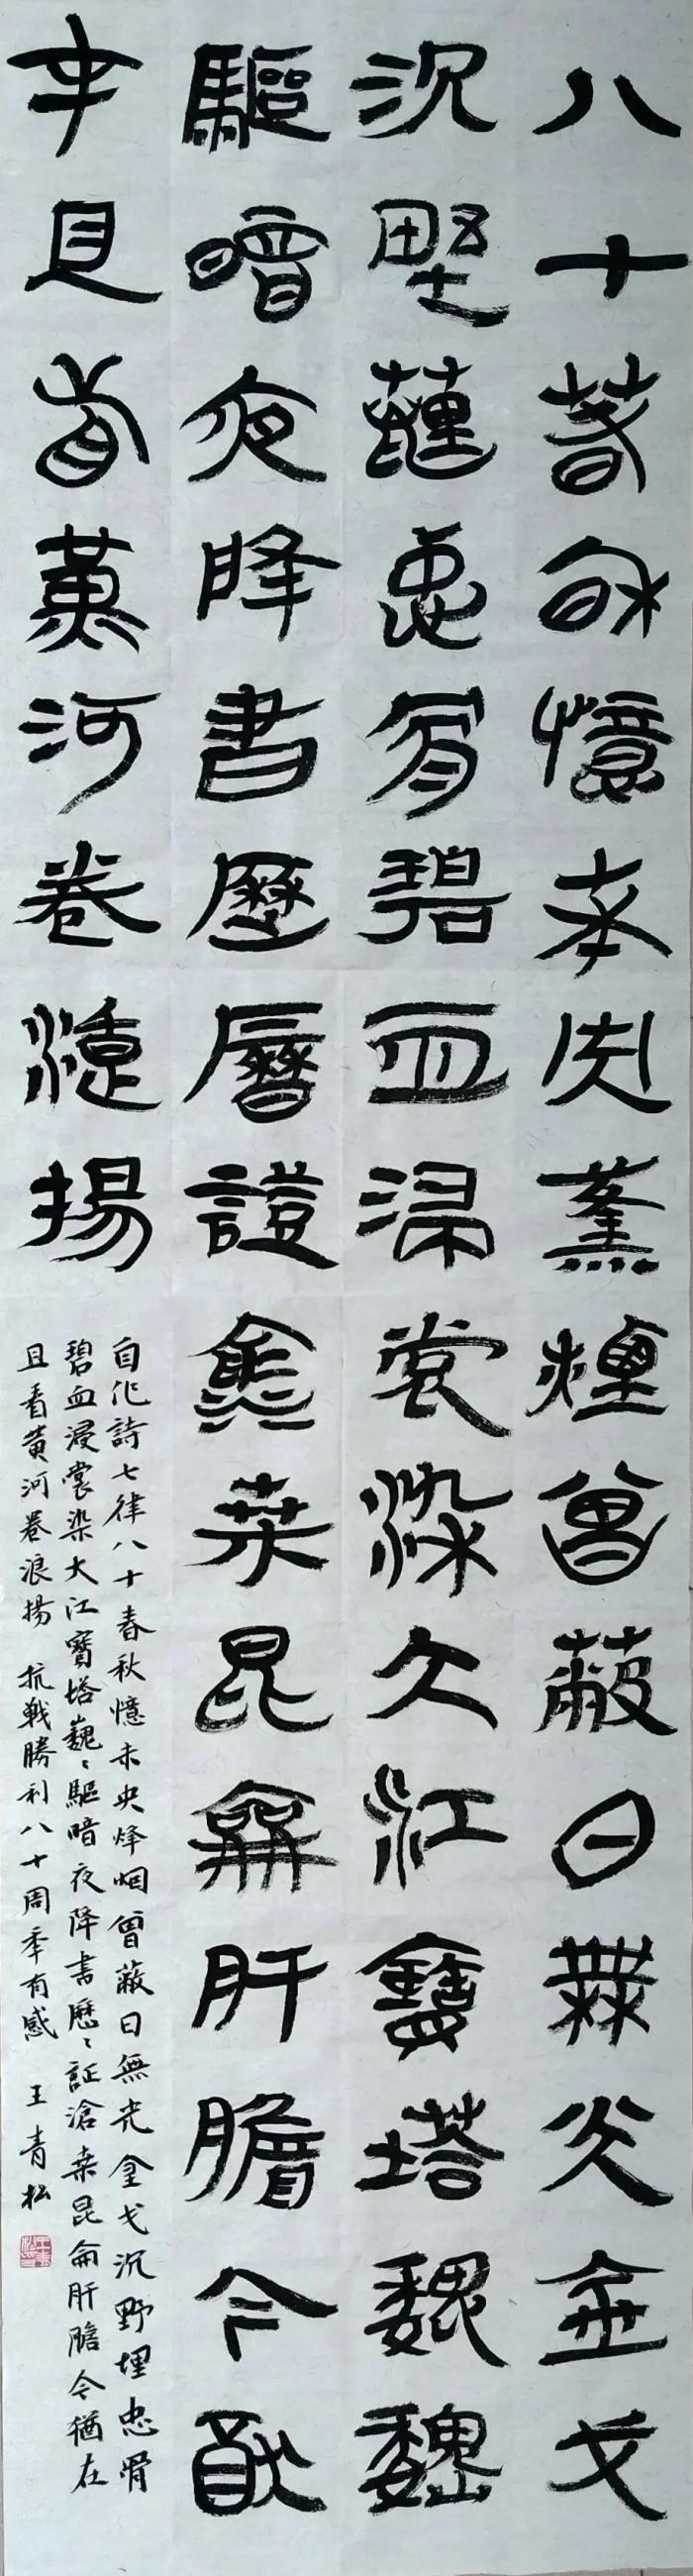 八十萅秋憶未央薰煙曾蔽日無炗金戈
沉野薶忠骨碧血浸裳染大江寶塔巍巍
驅暗夜降書歷曆證滄桑昆侖肝膽今猶
在且看黃河卷浪揚
自作詩七律八十春秋憶未央烽烟曾蔽日無光金戈沉野埋忠骨
碧血浸裳染大江寶塔巍〻驅暗夜降書歷〻証滄桑昆侖肝膽今猶在
且看黃河卷浪揚 抗戰勝利八十周年有感 王青松